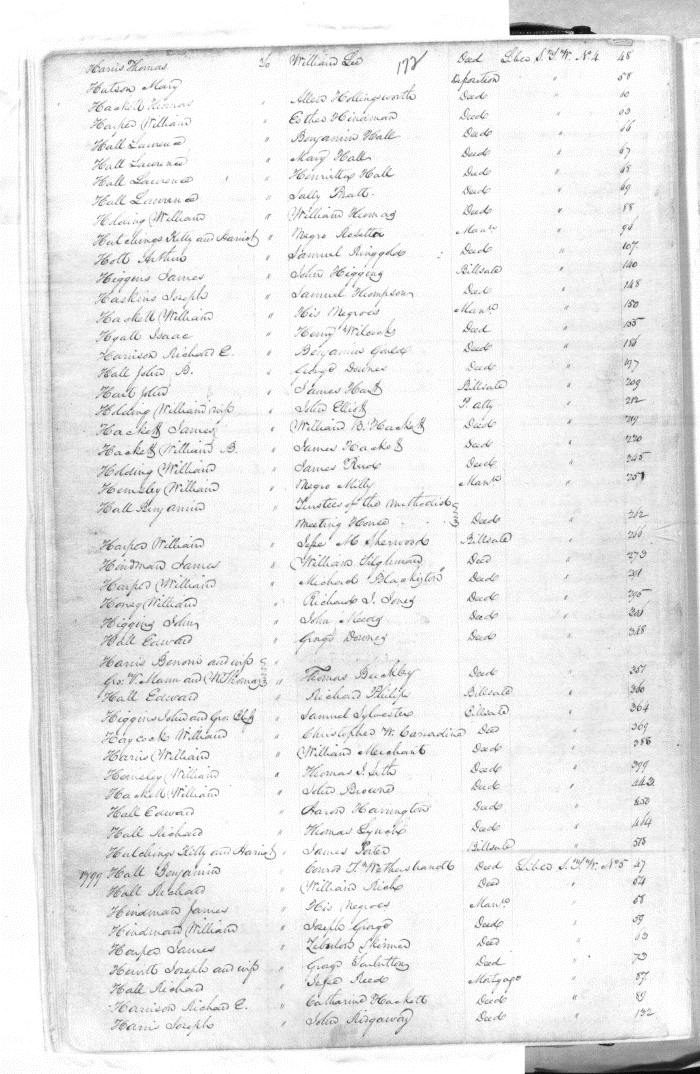 Harris Thomas to William Lee 172 Deed Liber S.T.W. No 4 48
Hutson Mary Deposition " 58
Hackett Thomas " Allen Hollingsworth Deed " 10
Harper William " Esther Hindman Deed " 63
Hall Lawrence " Benjamin Hall Deed " 66
Hall Lawrence " Mary Hall Deed " 67
Hall Lawrence " Henrietta Hall Deed " 68
Hall Lawrence " Sally Pratt Deed " 69
Holding William " William Thomas Deed " 88
Hutchings Kitty and Harriot " Negro Manu. " 96
Holt Arthur " Samuel Ringgold Deed " 107
Higgins James " John Higgins Billsale " 140
Haskins Joseph " Samuel Thompson Deed " 148
Hackett William " His Negroes Manu. " 150
Hyatt Isaac " Henry Wilcocks Deed " 155
Harrison Richard C. " Benjamin Gould Deed " 186
Hall John B. " George Downes Deed " 197
Hart John " James Hart Billsale " 209
Holding William & wife " John Elliott P. atty " 212
Hackett James " William B. Hackett Deed " 219
Hackett William B. " James Hackett Deed " 220
Holding William " James Deed " 245
Hemsley William " Negro Milly Manu. " 257
Hall Benjamin " Trustees of the Methodist
Meeting House Deed " 262
Harper William " M Sherwood Billsale " 260
Hindman James " William Tilghman Deed " 273
Harper William " Michael Blackiston Deed " 291
Honey William " Richard I. Jones Deed " 295
Higgins John " John Deed "
Hall Edward " George Downes Deed " 328
Harris Benoni and wife "
Geo: V. Mann and W. Thomas " Thomas Buckley Deed " 357
Hall Edward " Richard Philips Billsale " 360
Higgins John and Geo: " Samuel Sylvester Billsale " 364
Haycock William " Christopher W. Carradine Deed " 369
Harris William " William Merchant Deed " 386
Hemsley William " Thomas I. Seth Deed " 399
Hackett William " John Browne Deed " 443
Hall Edward " Aaron Harrington Deed " 450
Hall Richard " Thomas Lynch Deed " 464
Hutchings Kitty and Harriot " James Porter Billsale " 515
1799 Hall Benjamin " Conrod T. Wetherstrandt Deed Liber S.T.W. No 5 47
Hall Richard " William Rich Deed " 54
Hindman James " His Negroes Manu. " 58
Hindman William " Joseph George Deed " 59
Harper James " Zebulon Skinner Deed " 63
Hewitt Joseph and wife " George Tarbutton Deed " 73
Hall Richard " Jesse Reed Mortgage " 87
Harrison Richard C. " Catharine Hackett Deed " 89
Harris Joseph " John Ridgaway Deed " 132